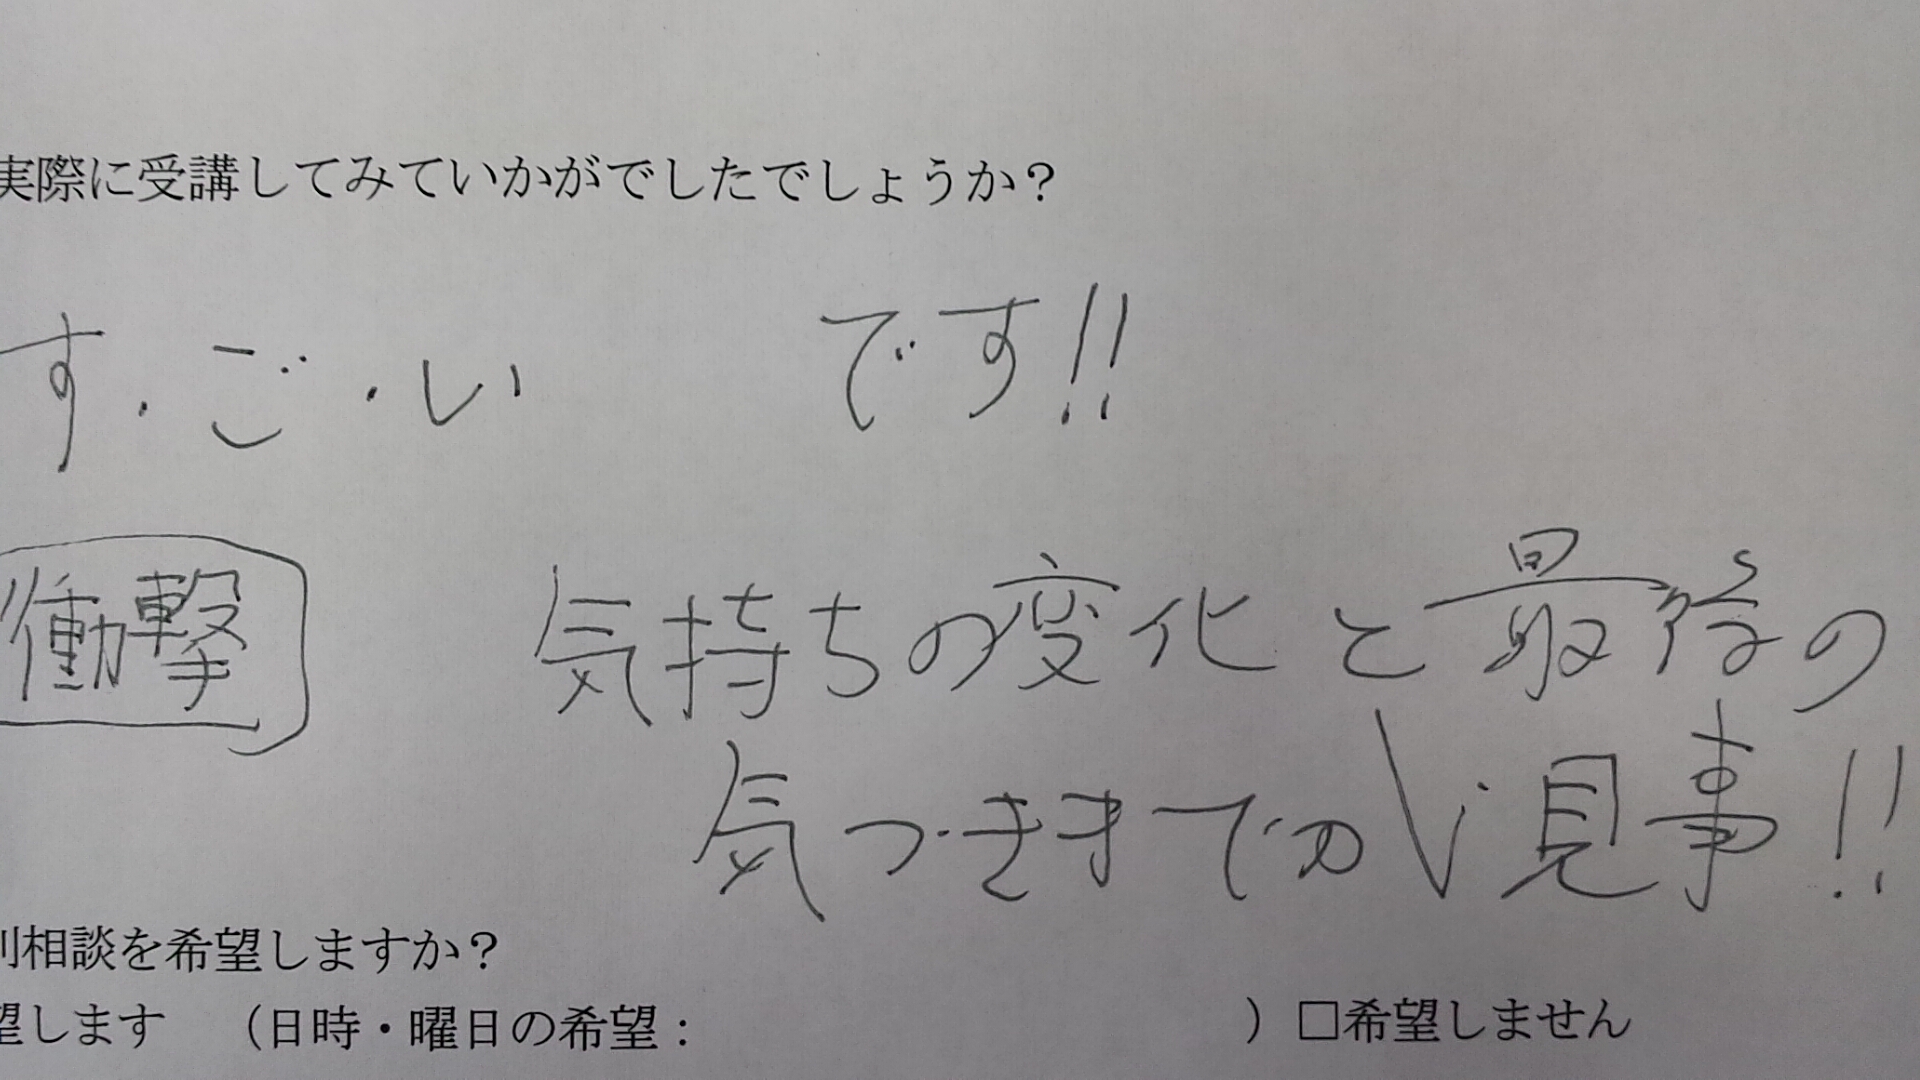 実際に受講してみていかがでしたでしょうか？
す・ご・い です!!
衝撃 気持ちの変化と最後の
気づきまでの 見事!!
別相談を希望しますか？
望します （日時・曜日の希望： ）□希望しません